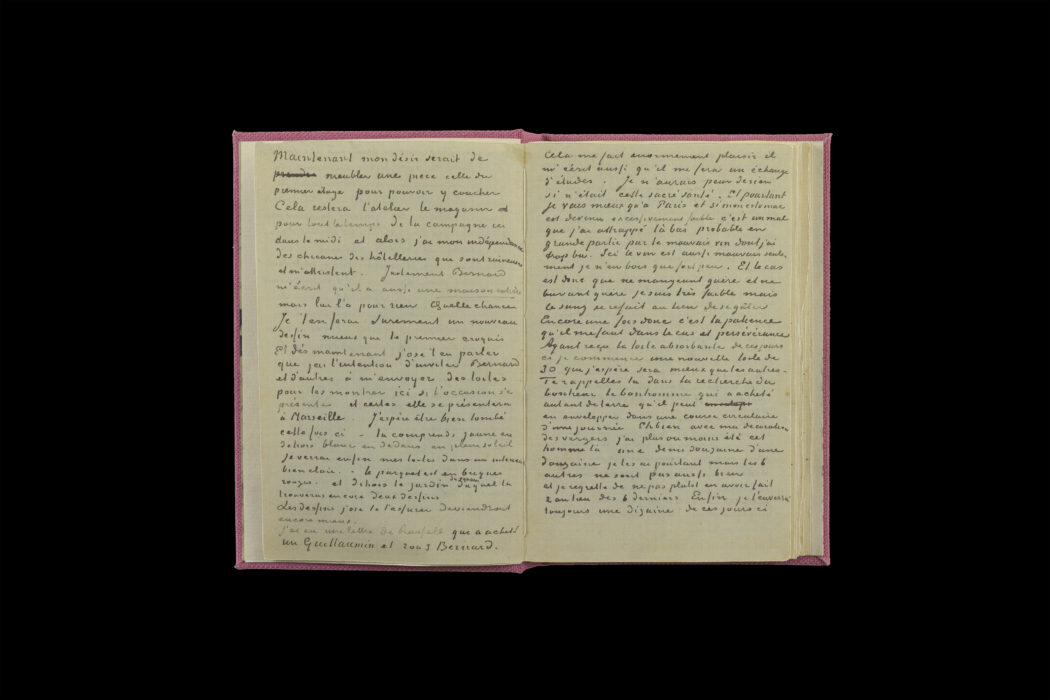 Maintenant mon désir serait de
prendre meubler une piece celle du
premier étage pour pouvoir y coucher
Cela restera l'atelier le magasin et
pour tout le temps de la campagne ici
dans le midi et alors j'ai mon indépendance
des chicanes des hôtelleries que sont ruineuses
et m'attristent. Justement Bernard
m'écrit qu'il a aussi une maison entière
mais lui l'a pour rien Quelle chance
Je t'en ferai surement un nouveau
dessin mieux que le premier croquis
Et dès maintenant j'ose t'en parler
que j'ai l'intention d'inviter Bernard
et d'autres à m'envoyer des toiles
pour les montrer ici si l'occasion s'en
présente et certes elle se présentera
à Marseille. J'espère être bien tombé
cette fois ci – tu comprends jaune en
dehors blanc en dedans en plein soleil
je verrai enfin mes toiles dans un interieur
bien clair. – le parquet est en briques
rouges. et dehors le jardin du square duquel tu
trouveras encore deux dessins
Les dessins j'ose te l'assurer deviendront
encore mieux.
j'ai eu une lettre de Russell que a acheté
un Guillaumin et 2 ou 3 Bernard.
Cela me fait enormement plaisir il
m'écrit aussi qu'il me fera un échange
d'études. Je n'aurais peur de rien
si n'était cette sacré santé. Et pourtant
je vais mieux qu'à Paris et si mon estomac
est devenu excessivement faible c'est un mal
que j'ai attrappé là bas probable en
grande partie par le mauvais vin dont j'ai
trop bu. Ici le vin est aussi mauvais seule-
ment je n'en bois que fort peu. Et le cas
est donc que ne mangeant guère et ne
buvant guère je suis très faible mais
le sang se refait au lieu de se gâter
Encore une fois donc c'est la patience
qu'il me faut dans le cas et persévérance
Ayant reçu la toile absorbante de ces jours
ci je commence une nouvelle toile de
30 que j'espère sera mieux que les autres –
Te rappelles tu dans la recherche du
bonheur le bonhomme qui a acheté
autant de terre qu'il peut
en envelopper dans une course circulaire
d'une journée Eh bien avec ma décoration
des vergers j'ai plus ou moins été cet
homme là une demi douzaine d'une
douzaine je les ai pourtant mais les 6
autres ne sont pas aussi bien
et je regrette de ne pas plutôt en avoir fait
2 au lieu des 6 derniers Enfin je t'enverrai
toujours une dizaine de ces jours ci